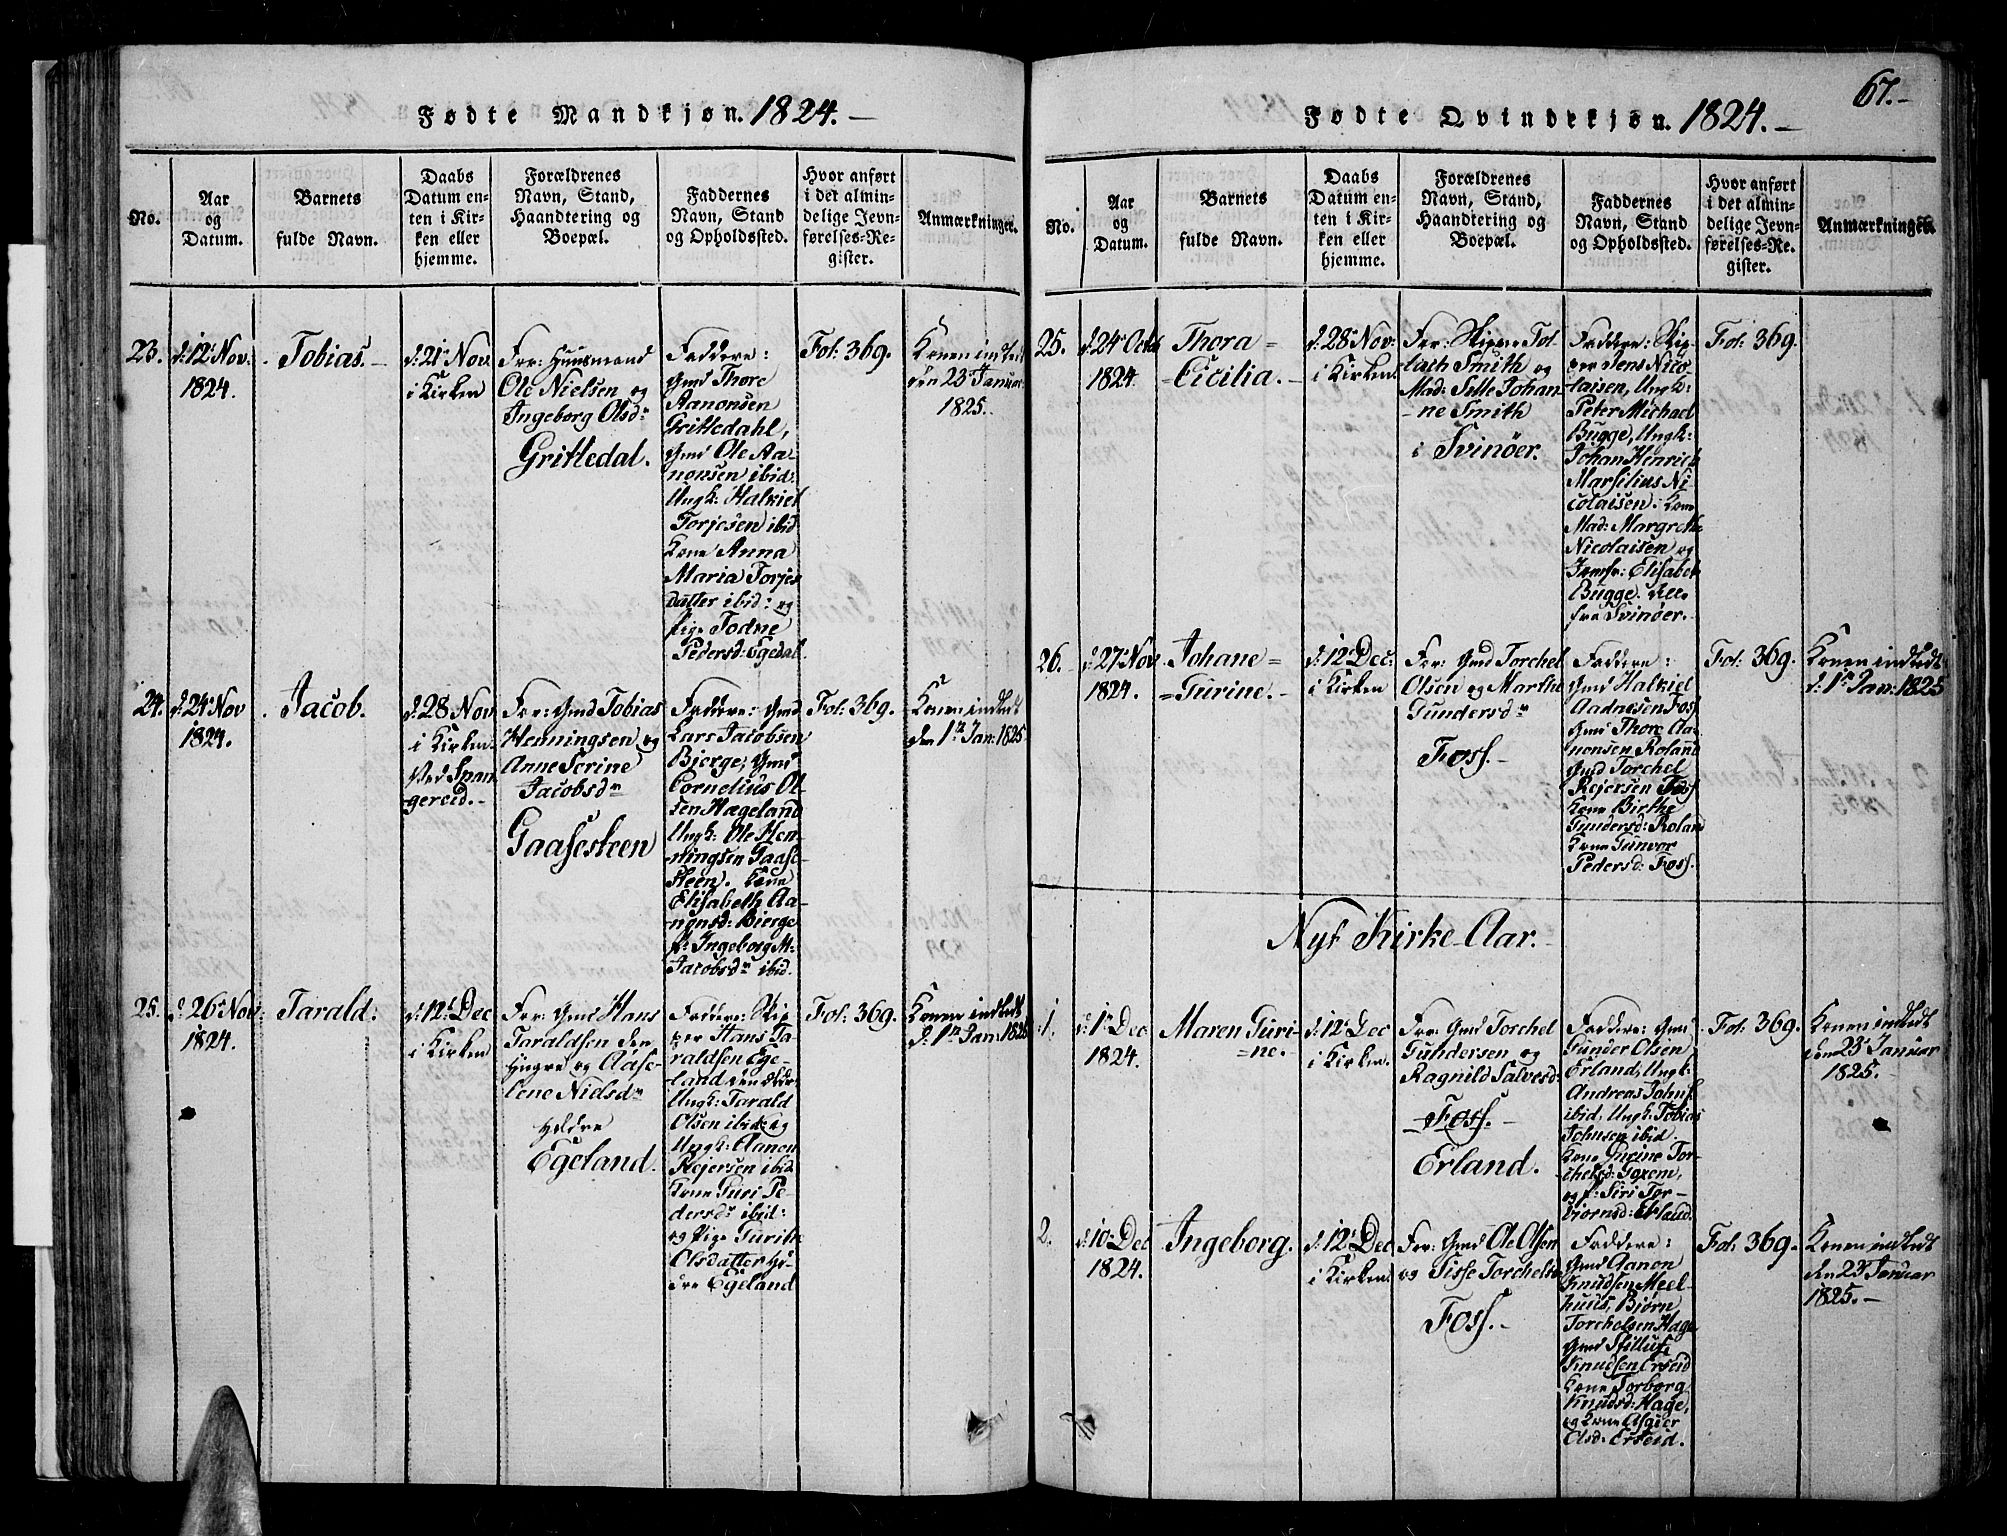 Fødte Mandkjøn. 1824.-
No.
Aar
og
Datum.
Barnets
fulde Navn.
Daabs
Datum en-
ten i Kir-
ken eller
hjemme.
Forældrenes
Navn, Stand,
Haandtering og
Boepæl.
Faddernes
Navn, Stand
og Opholdssted.
Hvor anført
i det almin-
delige Jevn-
førelses-Re-
gister.
Anmærkninger.
23.
d: 12te Nov:
1824.
Tobias.-
d: 21de Nov:
i Kirken
For: Huusmand
Ole Nielsen og
Ingeborg Olsdr
Grittedal.
Faddere:
Gmd Thore
Aanonsen
Grittedahl,
Gmd Ole Aa-
nonsen ibid.
Ungk: Halkiel
Torjesen ibid
Kone Anna
Maria Torjes
datter ibid: og
Pige Todne
Pedersd: Egedal.
Fol: 369.
Konen indledt
den 23de Januar
1825.
24.
d: 24de Nov
1824.
Jacob.
d: 28 Nov
i Kirken
Ved Span-
gereid.-
For: Gmd Tobias
Henningsen og
Anne Serine
Jacobsdr
Gaasesteen
Faddere: Gmd
Lars Jacobsen
Bjerge, Gmd
Cornelius Ol-
sen Hægeland
Ungk: Ole Hen-
ningsen Gaase-
steen. Kone
Elisabeth Aa-
nonsd: Bierge
P: Ingeborg M.
Jacobsdr ibid.
Fol: 369.
Konen indledt
den 1te Jan: 1825
25.
d: 26de Nov:
1824.
Tarald.
d: 12te Dec
i Kirken
For: Gmd Hans
Taraldsen den
Yngre og Aase
lene Nielsdr
Ydre
Egeland.
Faddere: Skip
per Hans Ta-
raldsen Ege-
land den Eldr.
Ungk: Tarald
Olsen ibid: og
Ungk: Aanen
Rejersen ibid
Kone Guri Pe-
dersdr ibid:
og Pige Gurine
Olsdatter Yd-
dre Egeland
Fol: 369.
Konen indledt
d: 1te Jan: 1825
67.-
Fødte Qvindekjøn. 1824.-
No.
Aar
og
Datum.
Barnets
fulde Navn.
Daabs
Datum en-
ten i Kir-
ken eller
hjemme.
Forældrenes
Navn, Stand,
Haandtering og
Boepæl.
Faddernes
Navn, Stand
og Opholdssted.
Hvor anført
i det almin-
delige Jevn-
førelses-Re-
gister.
Anmærkninger.
25.
d: 24de Octbr
1824.
Thora=
=Cicilia.-
d: 28 Nov:
i Kirken
For: Skipper Tol-
lach Smith og
Mad: Sille Johan-
ne Smith
i Svinøer.
Faddere: Skip-
per Jens Nico-
laisen, Ungk:
Peter Michael
Bugge, Ungk:
Johan Henrich
Marsilius Ni-
colaisen. Kone
Mad: Margrethe
Nicolaisen og
Jomfr: Elisabet
Bugge. Alle
fra Svinøer.
Fol: 369.
26.
d: 27de Nov.
1824.
Johane=
=Gurine.-
d: 12te Dec:
i Kirken
For: Gmd Torchel
Olsen og Marthe
Gundersdr
Foss.-
Faddere:
Gmd Halkiel
Aadnesen Foss
Gmd Thore Aa-
nonsen Roland
Gmd Torchel
Rejersen Foss
Kone Birthe
Gundersd: Roland
Kone Gunvor
Pedersd: Foss.
Fol: 369.
Konen indledt
d: 1te Jan: 1825
Nyt Kirke-Aar.-
1.
d: 1te Dec
1824.
Maren Guri-
=ne.-
d: 12te Dec
i Kirken.
For: Gmd Torchel
Gundersen og
Ragnild Salvesd:
Foss.-
Erland.
Faddere: Gmd
Gunder Olsen
Erland, Ungk:
Andreas Johns.
ibid, Ungk: Tobias
Johnsen ibid.
Kone Greine Tor-
chelsd: Goxem,
og P: Siri Tor-
biørnsd: Erland.
Fol: 369.
Konen indledt
den 23de Januar
1825.-
2.
d: 10de Dec
1824.
Ingeborg.
d: 12te Dec
i Kirken
For: Gmd Ole Olsen
og Sisse Torchelsdr
Foss.-
Faddere:
Gmd Aanon
Knudsen Meel-
huus, Bjørn
Torchelsen Hage
Gmd Stilluf
Knudsen Erseid
Kone Torborg
Knudsd: Hage,
og Kone Asgier
Olsd: Erseid.
Fol: 369.
Konen indledt
den 23de Januar
1825.-